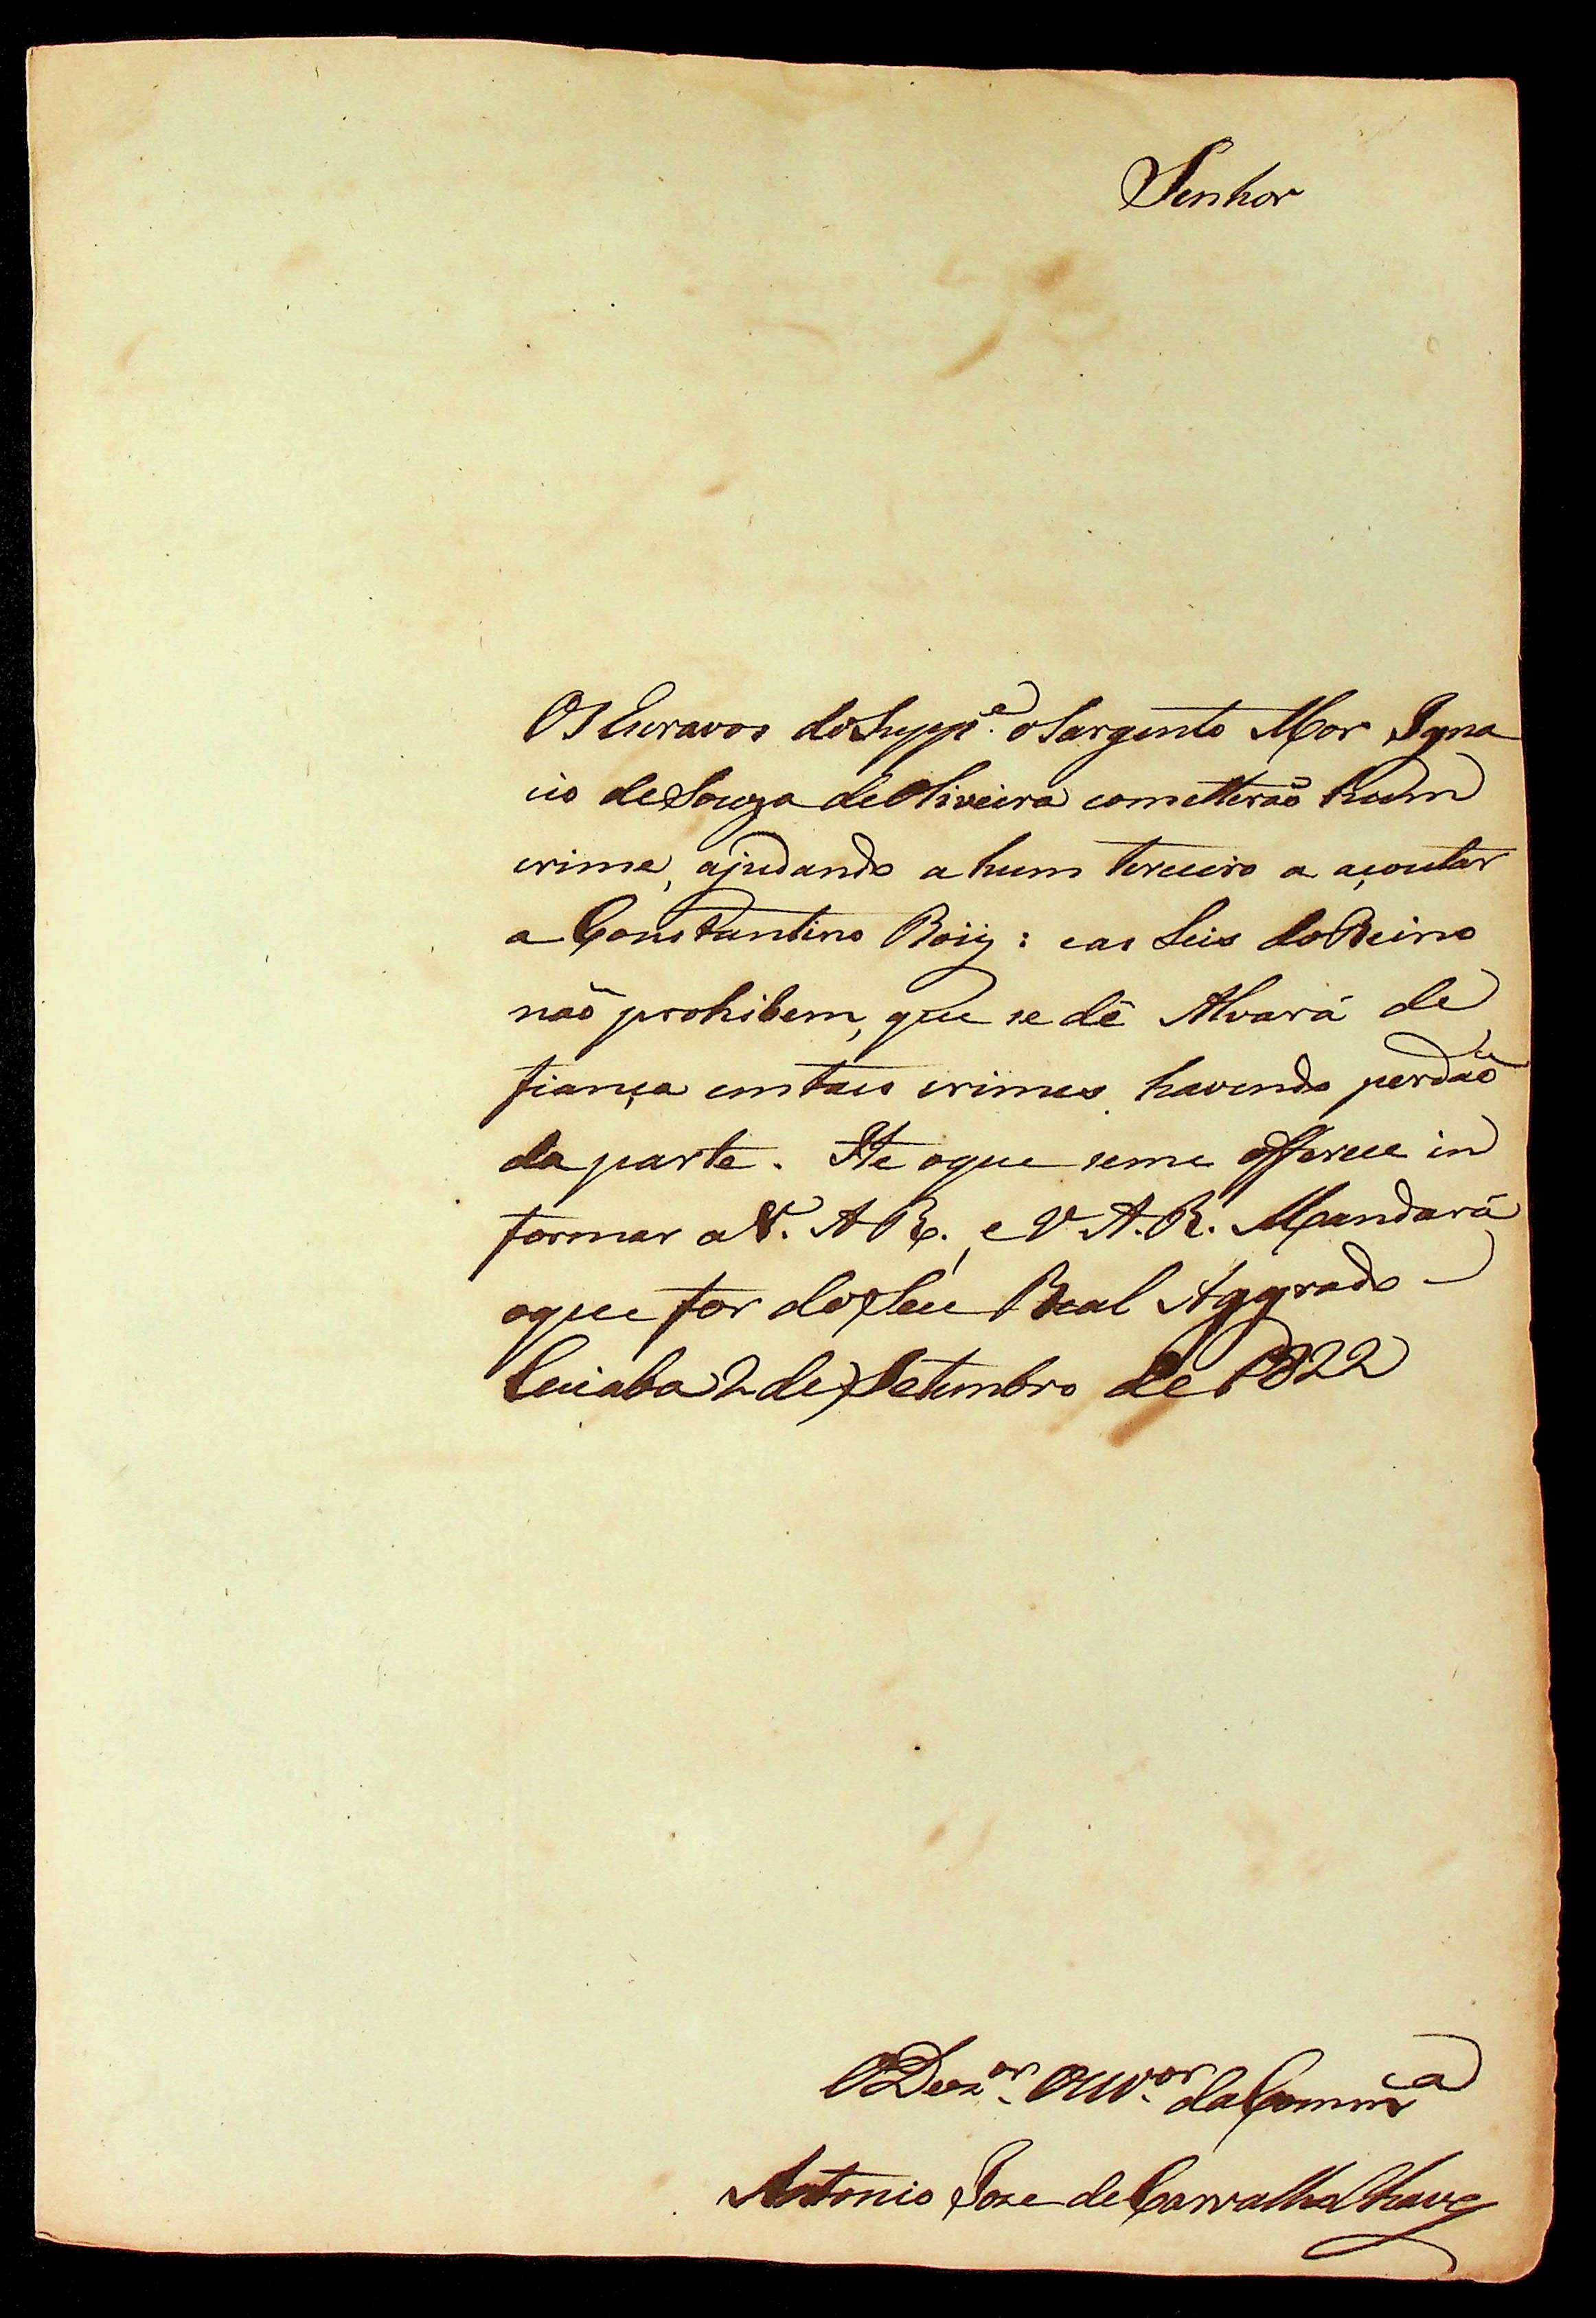 Senhor
Os Escravos do Supp.e o Sargento Mor Igna
cio de Souza de Oliveira cometterão hum
crime, ajudando a hum terceiro a açoutar
a Constantino Roiz: e as Leis do Reino
não prohibem, que se dê Alvará de
fiança em taes crimes havendo perdão
da parte. He o que se me offerece in
formar a V. A. R., e V. A. R. Mandará
o que for do Seu Real Aggrado
Cuiaba 2 de Setembro de 1822
O Dez.or Ouv.or da Comm.ca
Antonio Joze de Carvalho Chaves